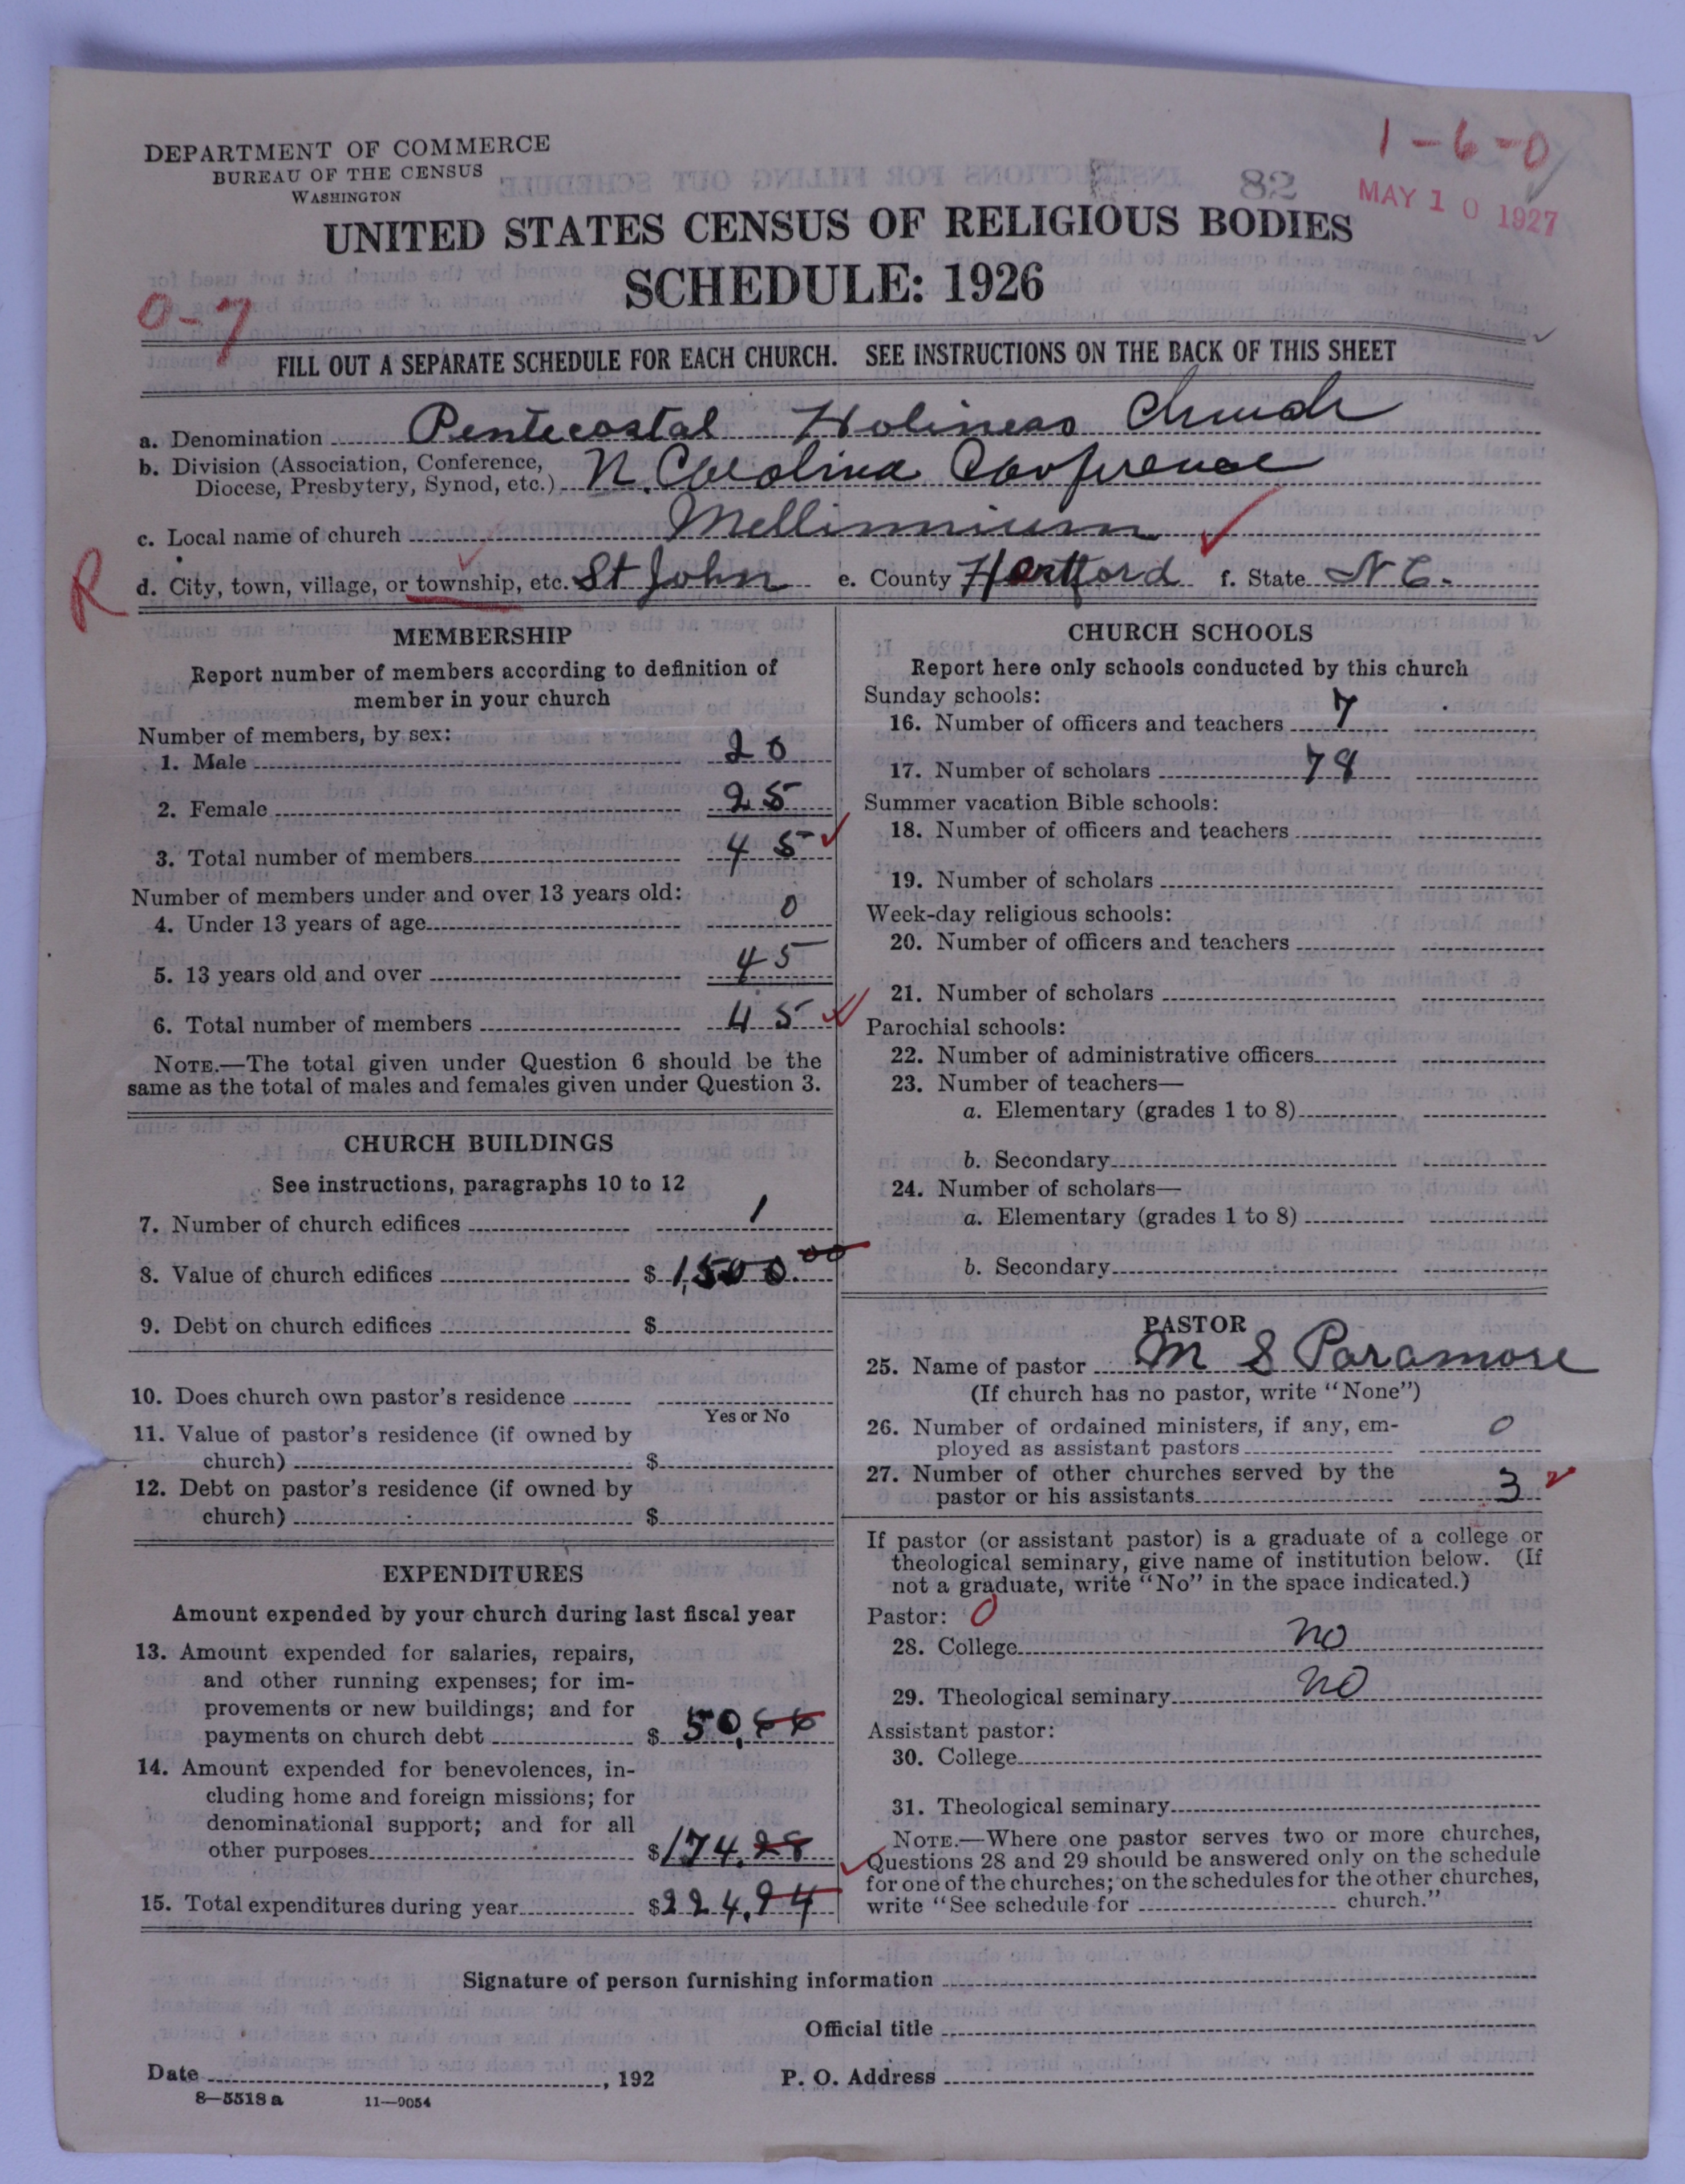 1-6-0
DEPARTMENT OF COMMERCE
BUREAU OF THE CENSUS
WASHINGTON
82
MAY 10 1927
UNITED STATES CENSUS OF RELIGIOUS BODIES
SCHEDULE: 1926
0-7
FILL OUT A SEPARATE SCHEDULE FOR EACH CHURCH. SEE INSTRUCTIONS ON THE BACK OF THIS SHEET
a. Denomination Pentecostal Holiness Church
b. Division (Association, Conference,
Diocese, Presbytery, Synod, etc.) N. Carolina Conference
c. Local name of church Mellinnium
R
d. City, town, village, or township, etc. St John e. County Hertford f. State N C.
MEMBERSHIP
Report number of members according to definition of
member in your church
Number of members, by sex:
1. Male 20
2. Female 25
3. Total number of members 45
Number of members under and over 13 years old:
4. Under 13 years of age 0
5. 13 years old and over 45
6. Total number of members 45
NOTE.—The total given under Question 6 should be the
same as the total of males and females given under Question 3.
CHURCH BUILDINGS
See instructions, paragraphs 10 to 12
7. Number of church edifices 1
8. Value of church edifices $ 1,500.00
9. Debt on church edifices $
10. Does church own pastor's residence
Yes or No
11. Value of pastor's residence (if owned by
church) $
12. Debt on pastor's residence (if owned by
church) $
EXPENDITURES
Amount expended by your church during last fiscal year
13. Amount expended for salaries, repairs,
and other running expenses; for im-
provements or new buildings; and for
payments on church debt $ 50.66
14. Amount expended for benevolences, in-
cluding home and foreign missions; for
denominational support; and for all
other purposes $ 174.28
15. Total expenditures during year $ 224.94
CHURCH SCHOOLS
Report here only schools conducted by this church
Sunday schools:
16. Number of officers and teachers 7
17. Number of scholars 78
Summer vacation Bible schools:
18. Number of officers and teachers
19. Number of scholars
Week-day religious schools:
20. Number of officers and teachers
21. Number of scholars
Parochial schools:
22. Number of administrative officers
23. Number of teachers—
a. Elementary (grades 1 to 8)
b. Secondary
24. Number of scholars—
a. Elementary (grades 1 to 8)
b. Secondary
PASTOR
25. Name of pastor M S Paramore
(If church has no pastor, write "None")
26. Number of ordained ministers, if any, em-
ployed as assistant pastors 0
27. Number of other churches served by the
pastor or his assistants 3
If pastor (or assistant pastor) is a graduate of a college or
theological seminary, give name of institution below. (If
not a graduate, write "No" in the space indicated.)
Pastor: 0
28. College no
29. Theological seminary no
Assistant pastor:
30. College
31. Theological seminary
NOTE.—Where one pastor serves two or more churches,
Questions 28 and 29 should be answered only on the schedule
for one of the churches; on the schedules for the other churches,
write "See schedule for church."
Signature of person furnishing information
Official title
Date , 192 P. O. Address
8—5518 a 11—9054